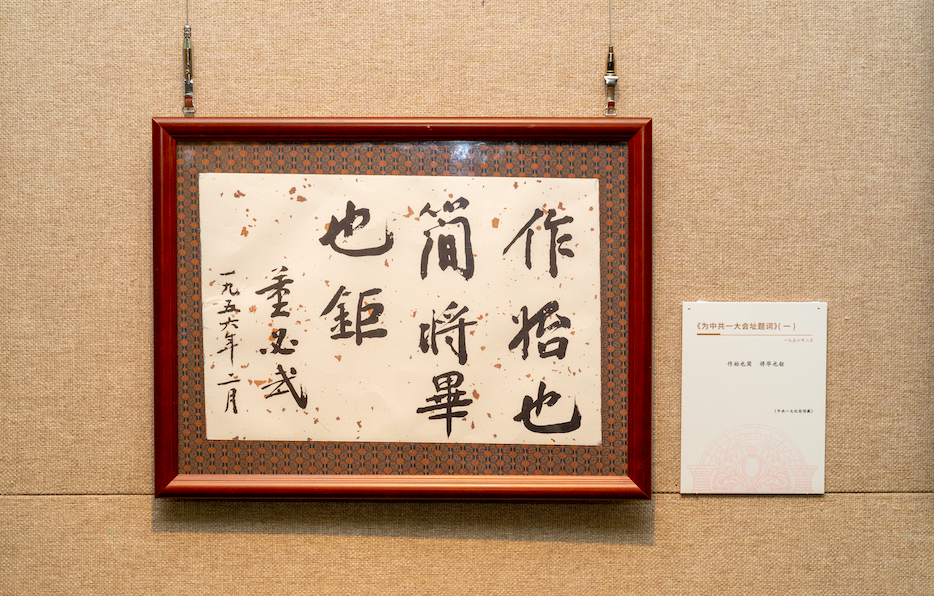 作始也
簡將畢
也鉅
董必武
一九五六年二月
《为中共一大会址题词》(一)
一九五六年二月
作始也简 将毕也钜
(中共一大纪念馆藏)